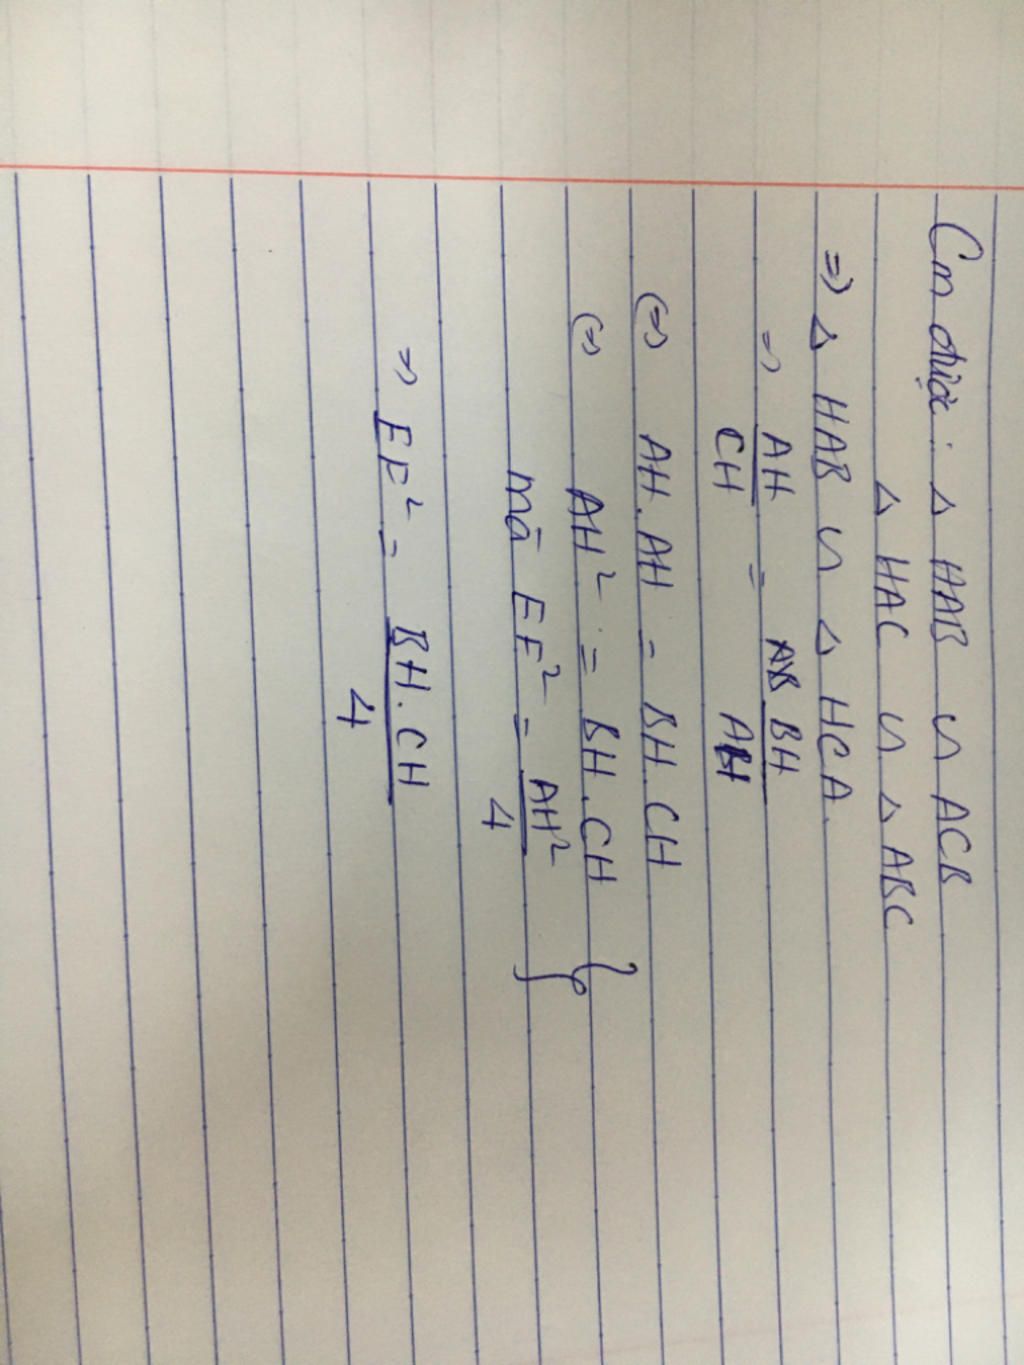 Cm được: △ HAB ∽ ACB
△ HAC ∽ △ ABC
=> △ HAB ∽ △ HCA.
=> AH/CH = BH/AH
<=> AH.AH = BH.CH
<=> AH² = BH.CH }
mà EF² = AH²/4
=> EF² = BH.CH/4